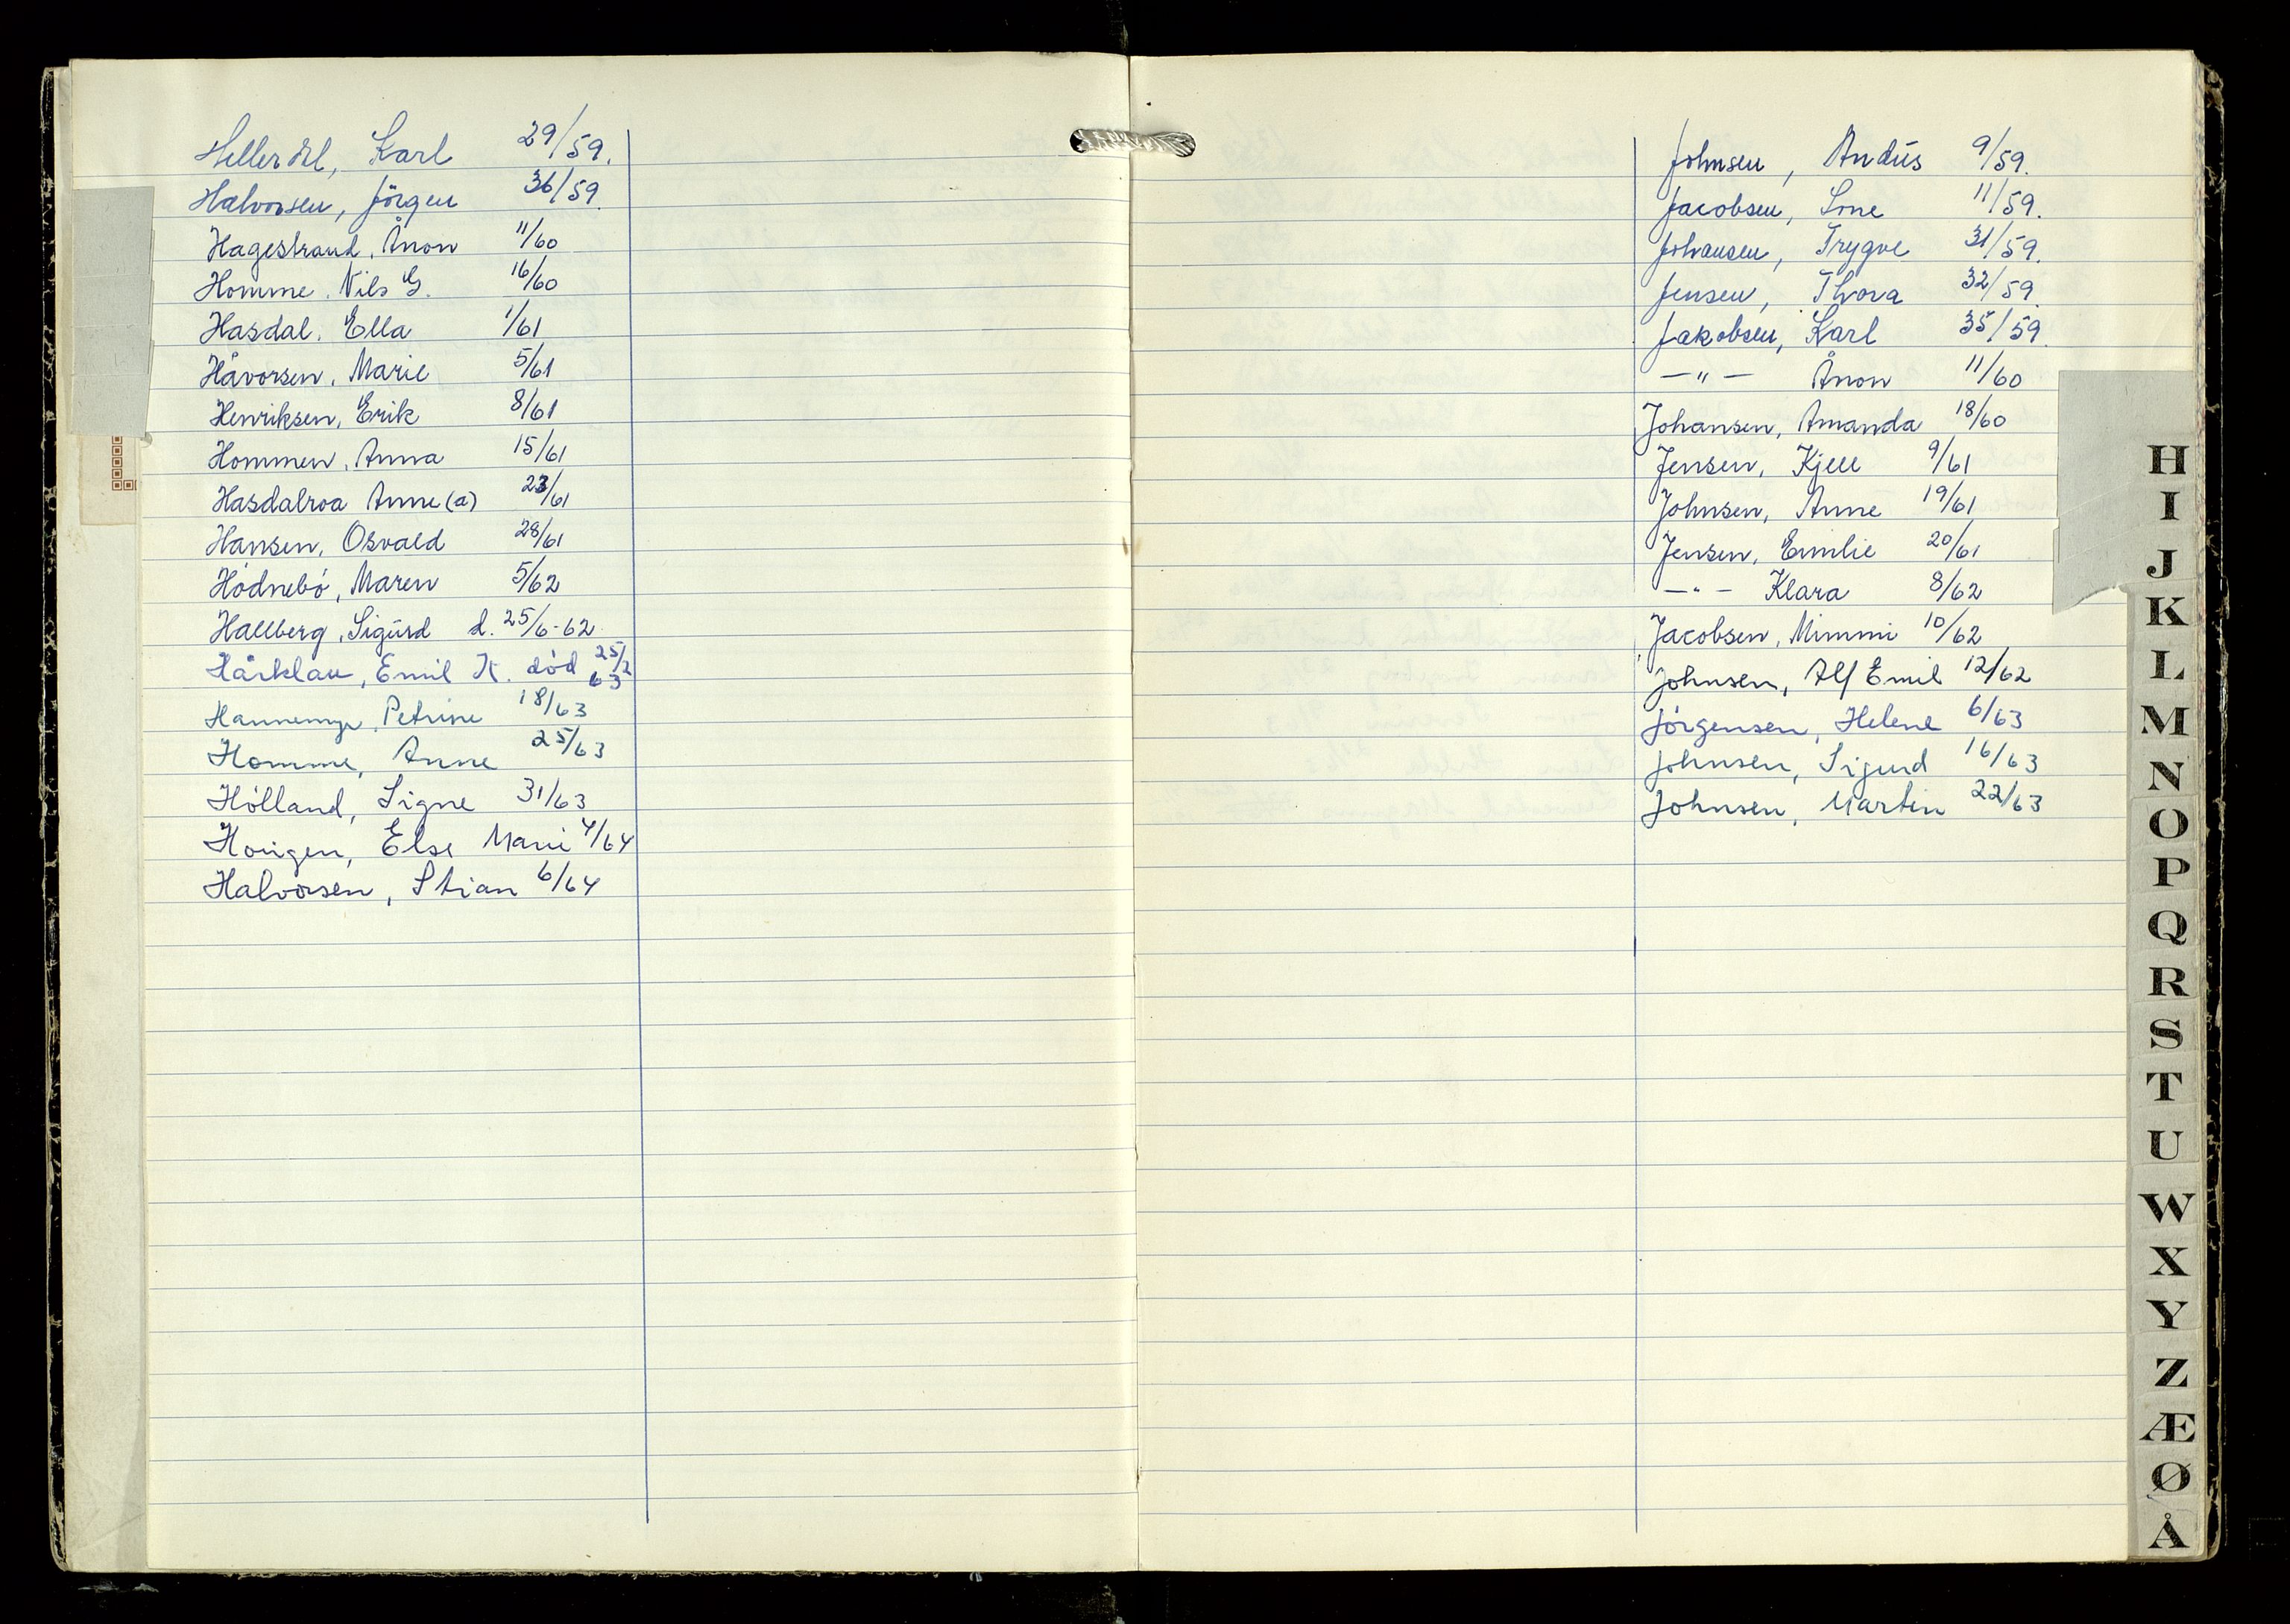 Hellerdel, Karl 29/59.
Halvorsen, Jörgen 36/59.
Hagestrand, Ånon 11/60
Homme, Nils G. 16/60
Hasdal, Ella 1/61
Håvorsen, Marie 5/61
Henriksen, Erik 8/61
Hommen, Anna 15/61
Hasdalroa Anne (a) 23/61
Hansen, Osvald 28/61
Hódnebó, Maren 5/62
Hallberg, Sigurd d. 25/6-62
Hårklau, Emil K. död 25/2 63
Hannemyr, Petrine 18/63
Homme, Anne 25/63
Hólland, Signe 31/63
Haugen, Else Marie 4/64
Halvorsen, Stian 6/64
Johnsen, Andús 9/59.
Jacobsen, Lone 11/59.
Johansen, Trygve 31/59.
Jensen, Thora 32/59.
Jakobsen, Karl 35/59.
—"— Ånon 11/60
Johansen, Amanda 18/60
Jensen, Kjell 9/61
Johnsen, Anne 19/61
Jensen, Emilie 20/61
—"— Klara 8/62
Jacobsen, Mimmi 10/62
Johnsen, Alf Emil 12/62
Jórgensen, Helene 6/63
Johnsen, Sigurd 16/63
Johnsen, Martin 22/63
H
I
J
K
L
M
N
O
P
Q
R
S
T
U
W
X
Y
Z
Æ
Ø
Å